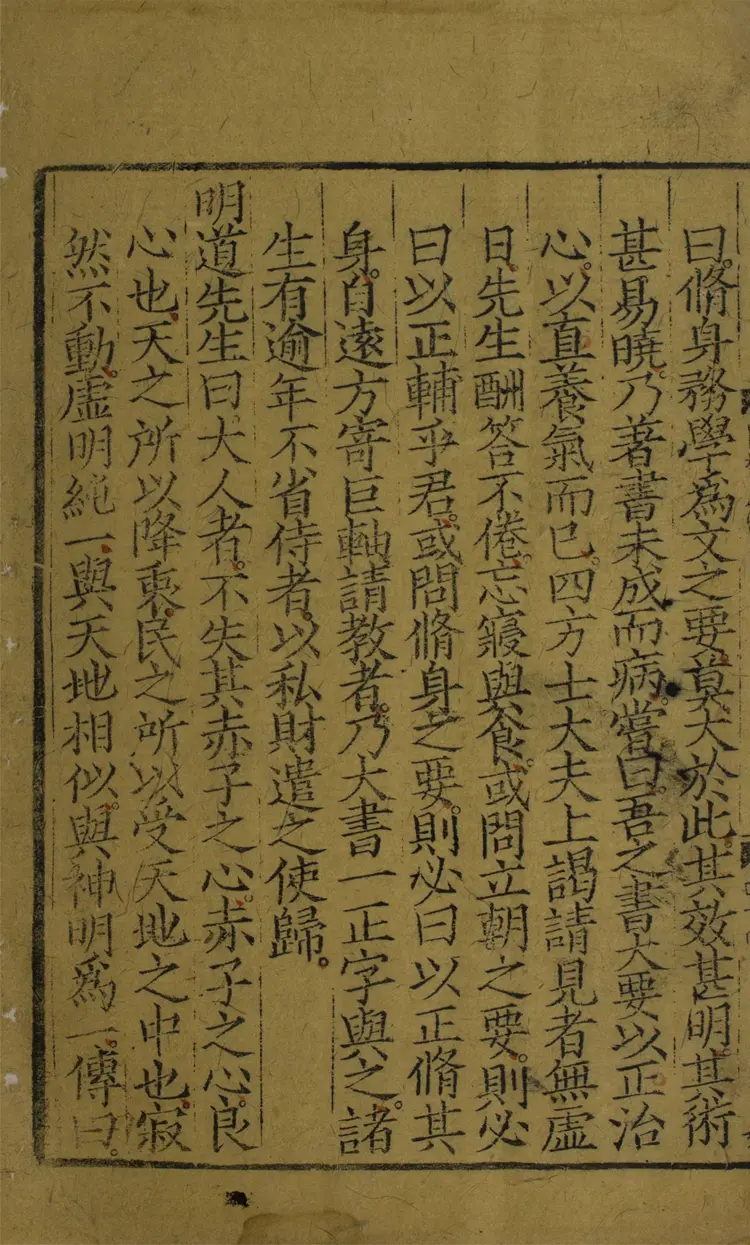 曰脩身務學爲文之要莫大於此其效甚明其術
甚易曉乃著書未成而病嘗曰吾之書大要以正治
心以直養氣而已四方士大夫上謁請見者無虛
日先生酬答不倦忘寢與食或問立朝之要則必
曰以正輔乎君或問脩身之要則必曰以正脩其
身自遠方寄巨軸請教者乃大書一正字與之諸
生有逾年不省侍者以私財遣之使歸
明道先生曰大人者不失其赤子之心赤子之心良
心也天之所以降衷民之所以受天地之中也寂
然不動虛明純一與天地相似與神明爲一傳曰